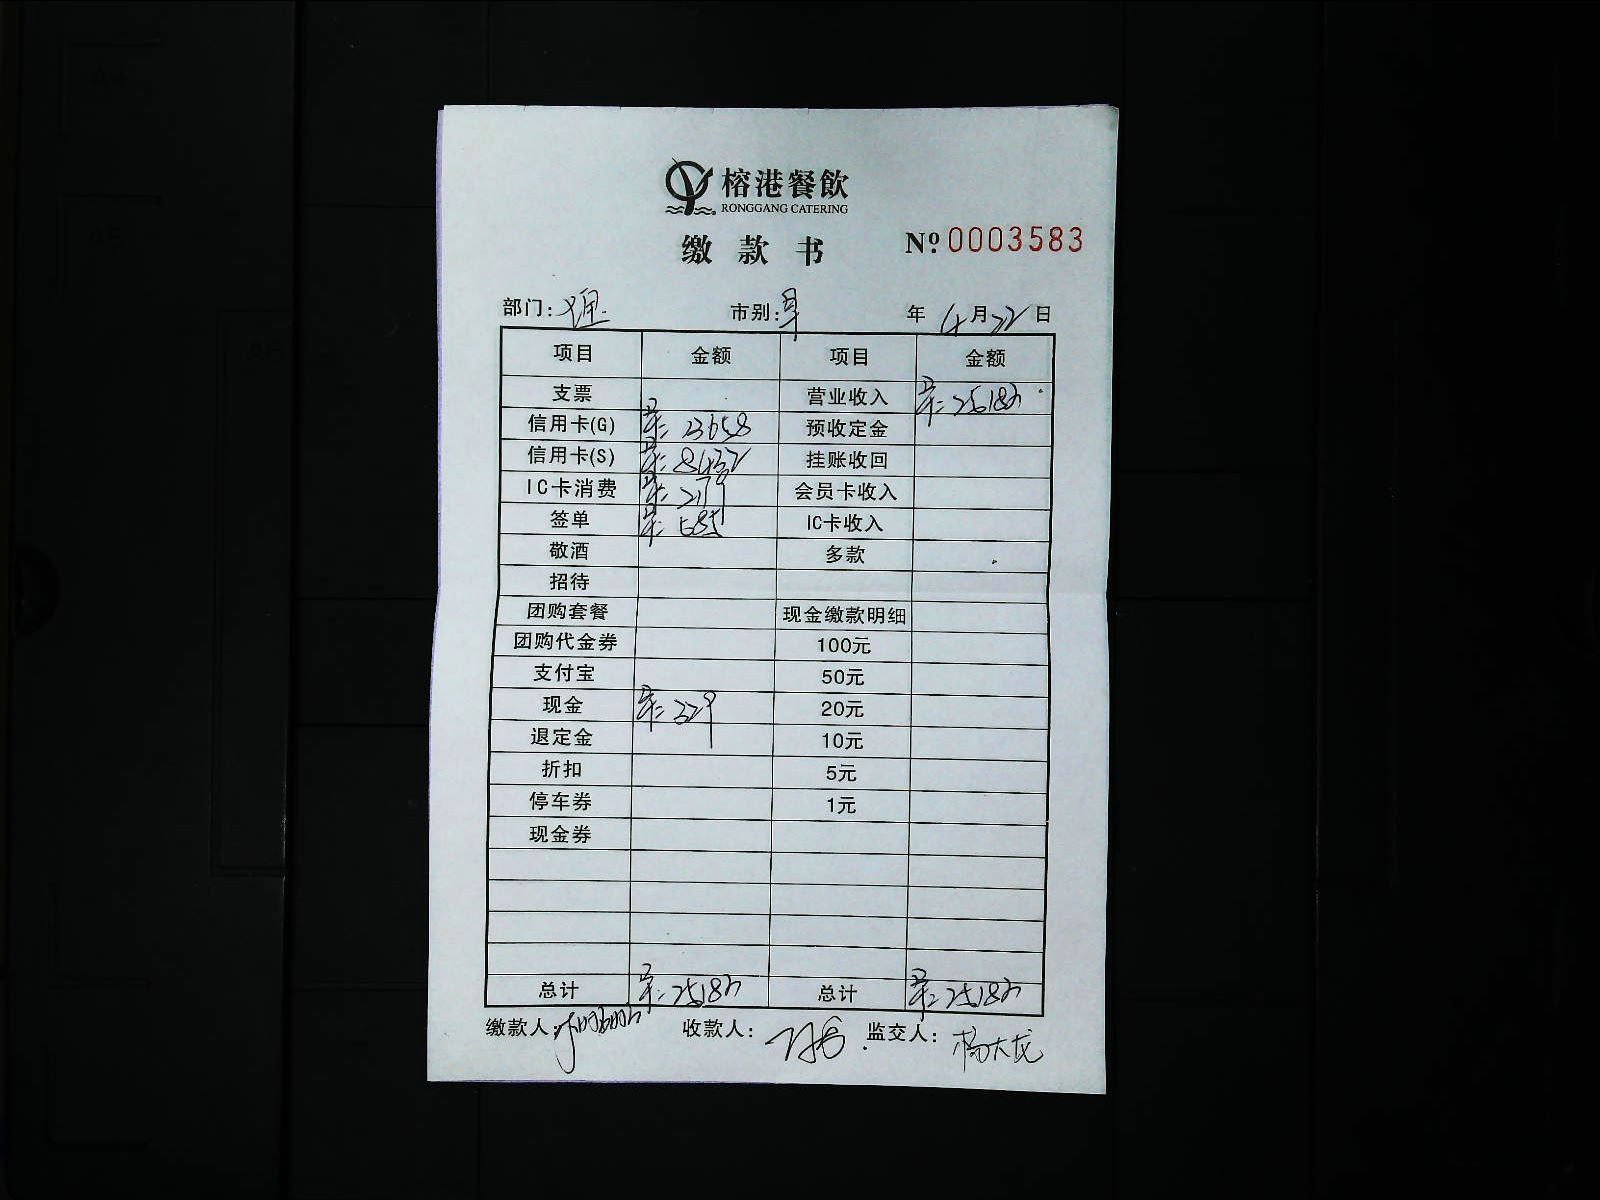 榕港餐飲
RONGGANG CATERING
缴款书 Nº 0003583
部门: 市别: 年 4月22日
项目 金额 项目 金额
支票 营业收入
信用卡(G) 23658 预收定金
信用卡(S) 挂账收回
IC卡消费 会员卡收入
签单 IC卡收入
敬酒 多款
招待
团购套餐 现金缴款明细
团购代金券 100元
支付宝 50元
现金 329 20元
退定金 10元
折扣 5元
停车券 1元
现金券
总计 总计
缴款人: 收款人: 监交人: 杨大龙